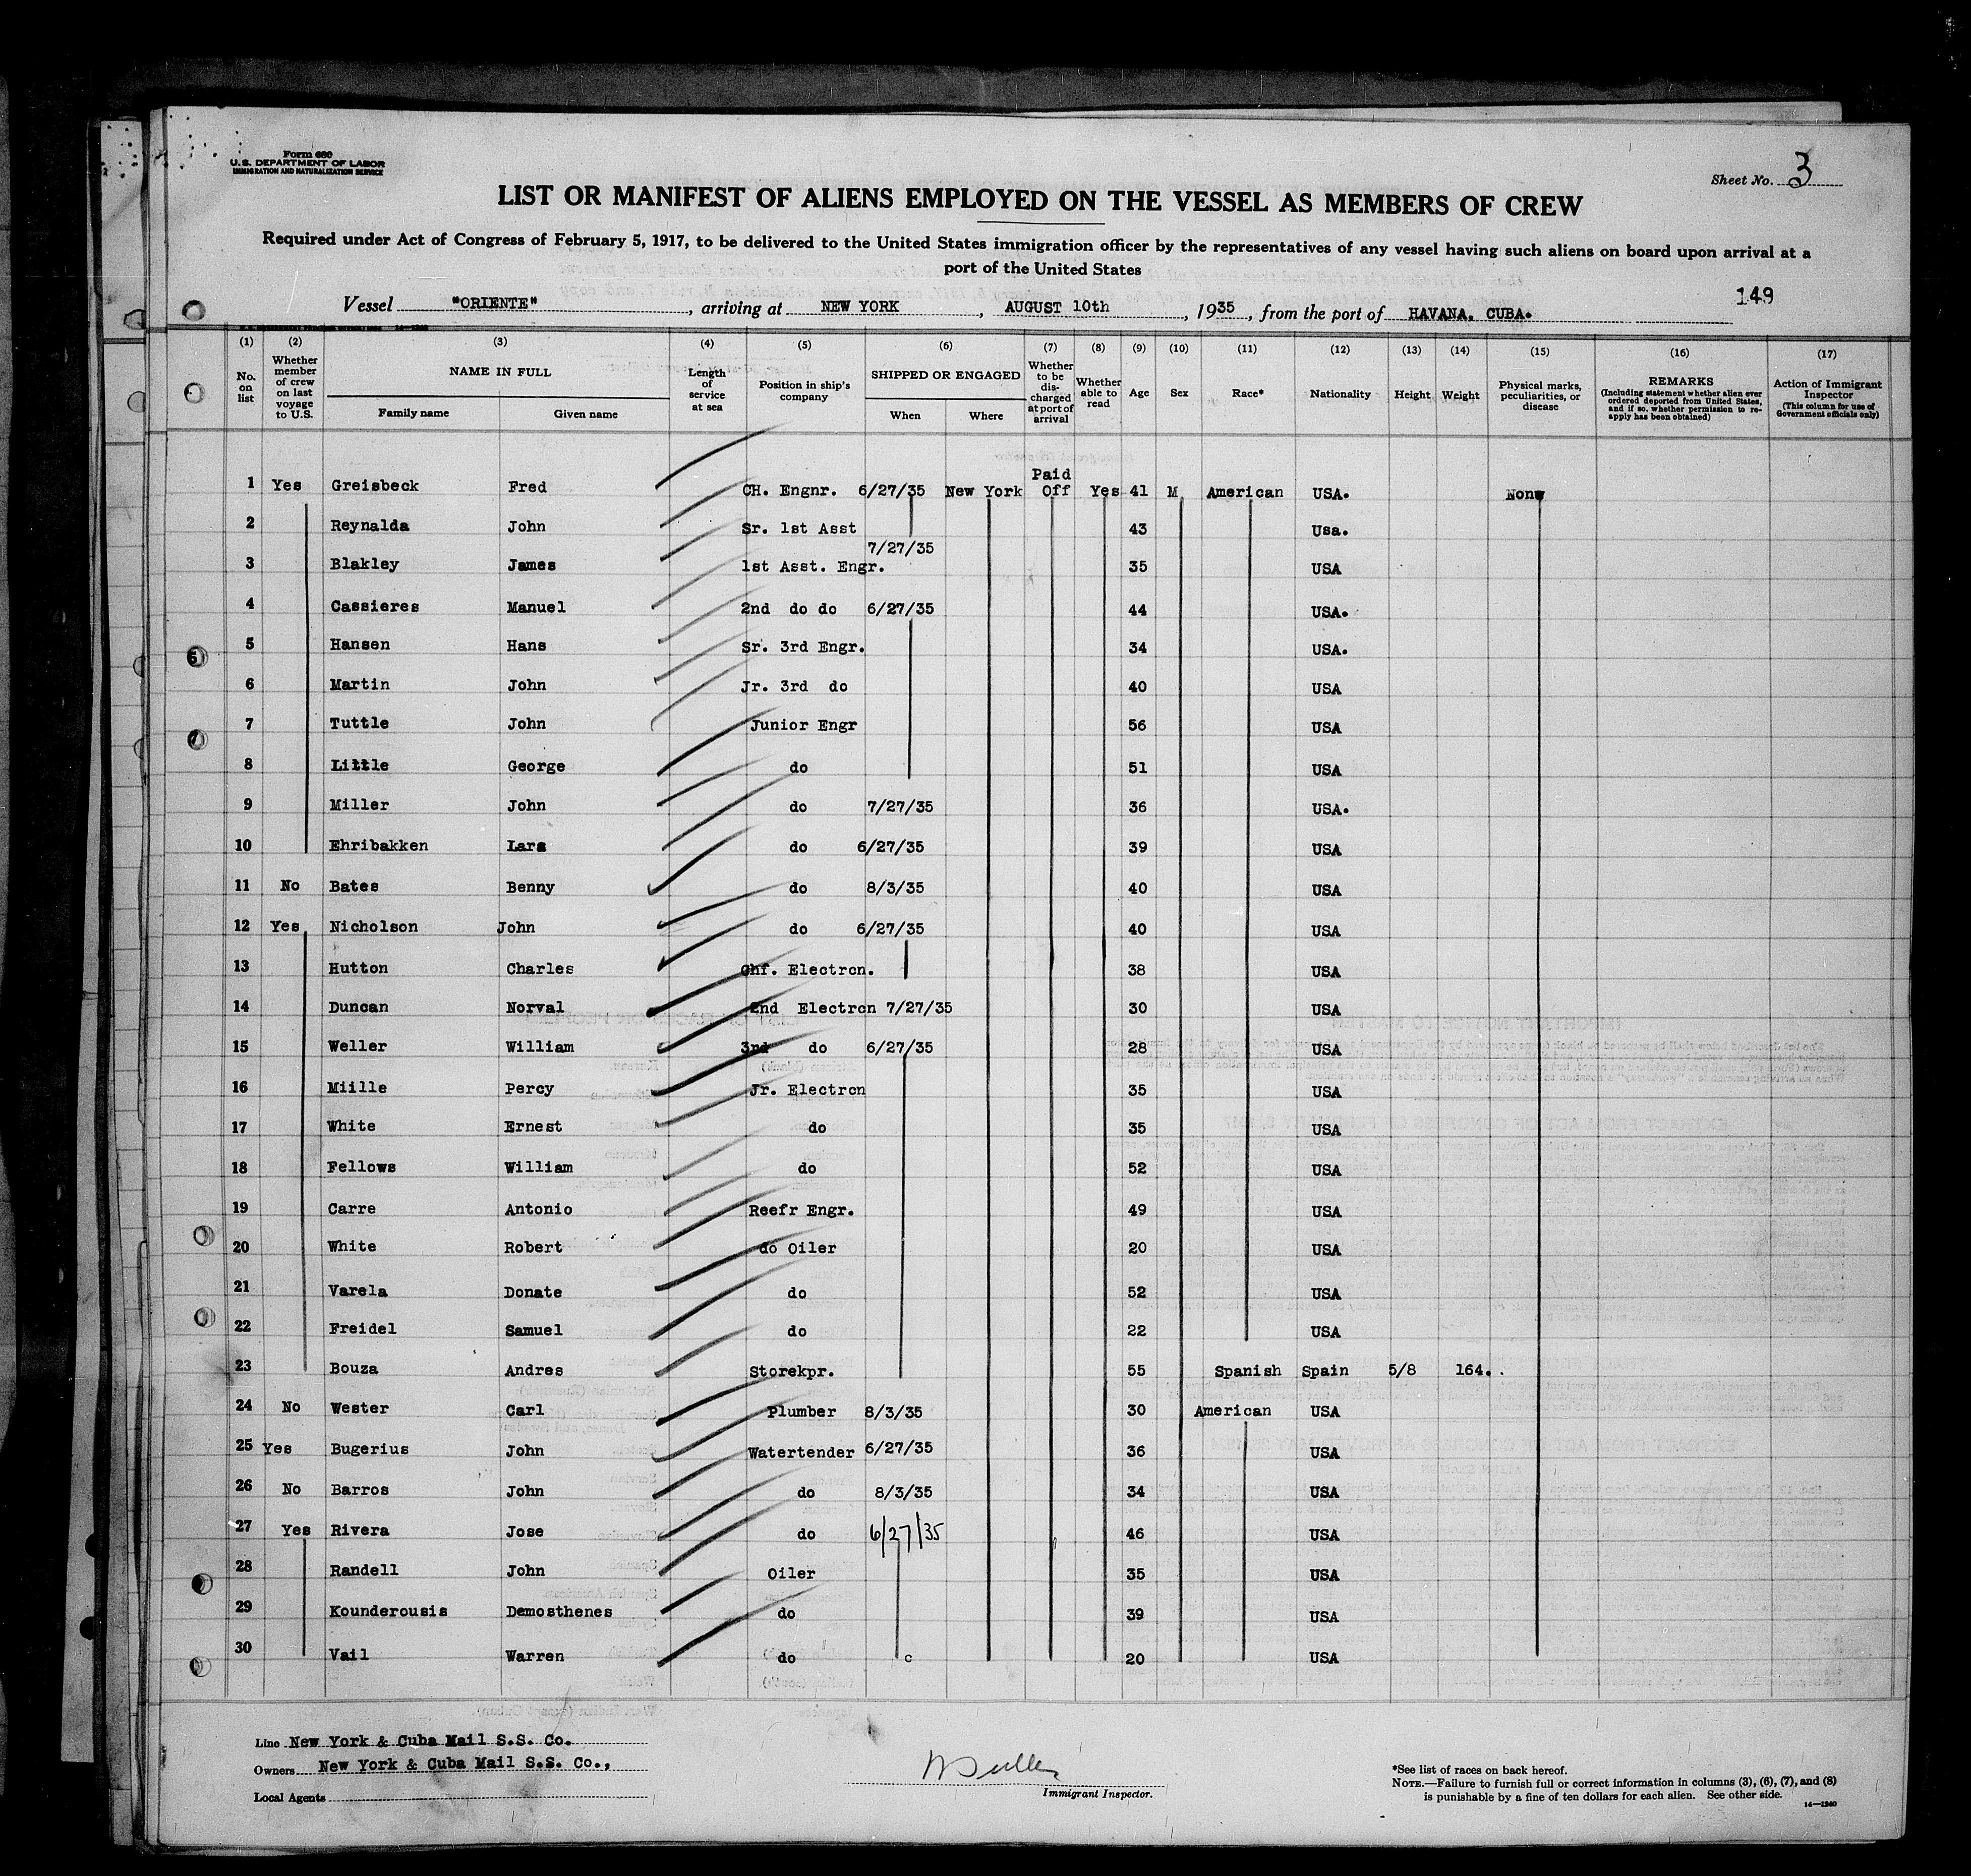 Form 680
U. S. DEPARTMENT OF LABOR
IMMIGRATION AND NATURALIZATION SERVICE
Sheet No. 3
LIST OR MANIFEST OF ALIENS EMPLOYED ON THE VESSEL AS MEMBERS OF CREW
Required under Act of Congress of February 5, 1917, to be delivered to the United States immigration officer by the representatives of any vessel having such aliens on board upon arrival at a
port of the United States
149
Vessel "ORIENTE", arriving at NEW YORK, AUGUST 10th, 1935, from the port of HAVANA, CUBA.
(1) (2) (3) (4) (5) (6) (7) (8) (9) (10) (11) (12) (13) (14) (15) (16) (17)
No. on list
Whether member of crew on last voyage to U.S.
NAME IN FULL
Family name Given name
Length of service at sea
Position in ship's company
SHIPPED OR ENGAGED
When Where
Whether to be discharged at port of arrival
Whether able to read
Age
Sex
Race*
Nationality
Height
Weight
Physical marks, peculiarities, or disease
REMARKS
(Including statement whether alien ever ordered deported from United States, and if so, whether permission to re-apply has been obtained)
Action of Immigrant Inspector
(This column for use of Government officials only)
1 Yes Greisbeck Fred CH. Engnr. 6/27/35 New York Paid Off Yes 41 M American USA. None
2 Reynalda John Sr. 1st Asst 43 Usa.
3 Blakley James 1st Asst. Engr. 7/27/35 35 USA
4 Cassieres Manuel 2nd do do 6/27/35 44 USA.
5 Hansen Hans Sr. 3rd Engr. 34 USA.
6 Martin John Jr. 3rd do 40 USA
7 Tuttle John Junior Engr 56 USA
8 Little George do 51 USA
9 Miller John do 7/27/35 36 USA.
10 Ehribakken Lars do 6/27/35 39 USA
11 No Bates Benny do 8/3/35 40 USA
12 Yes Nicholson John do 6/27/35 40 USA
13 Hutton Charles Chf. Electrcn. 38 USA
14 Duncan Norval 2nd Electrcn 7/27/35 30 USA
15 Weller William 3rd do 6/27/35 28 USA
16 Miille Percy Jr. Electrcn 35 USA
17 White Ernest do 35 USA
18 Fellows William do 52 USA
19 Carre Antonio Reefr Engr. 49 USA
20 White Robert do Oiler 20 USA
21 Varela Donate do 52 USA
22 Freidel Samuel do 22 USA
23 Bouza Andres Storekpr. 55 Spanish Spain 5/8 164.
24 No Wester Carl Plumber 8/3/35 30 American USA
25 Yes Bugerius John Watertender 6/27/35 36 USA
26 No Barros John do 8/3/35 34 USA
27 Yes Rivera Jose do 6/27/35 46 USA
28 Randell John Oiler 35 USA
29 Kounderousis Demosthenes do 39 USA
30 Vail Warren do c 20 USA
Line New York & Cuba Mail S.S. Co.
Owners New York & Cuba Mail S.S. Co.,
Local Agents
Immigrant Inspector.
*See list of races on back hereof.
NOTE.—Failure to furnish full or correct information in columns (3), (6), (7), and (8)
is punishable by a fine of ten dollars for each alien. See other side.
14—1240